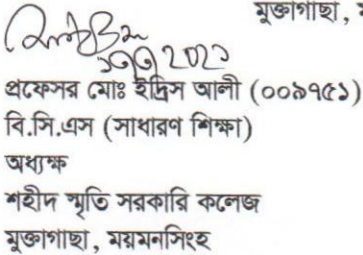 মুক্তাগাছা,
প্রফেসর মোঃ ইদ্রিস আলী (০০৯৭৫১)
বি.সি.এস (সাধারণ শিক্ষা)
অধ্যক্ষ
শহীদ স্মৃতি সরকারি কলেজ
মুক্তাগাছা, ময়মনসিংহ